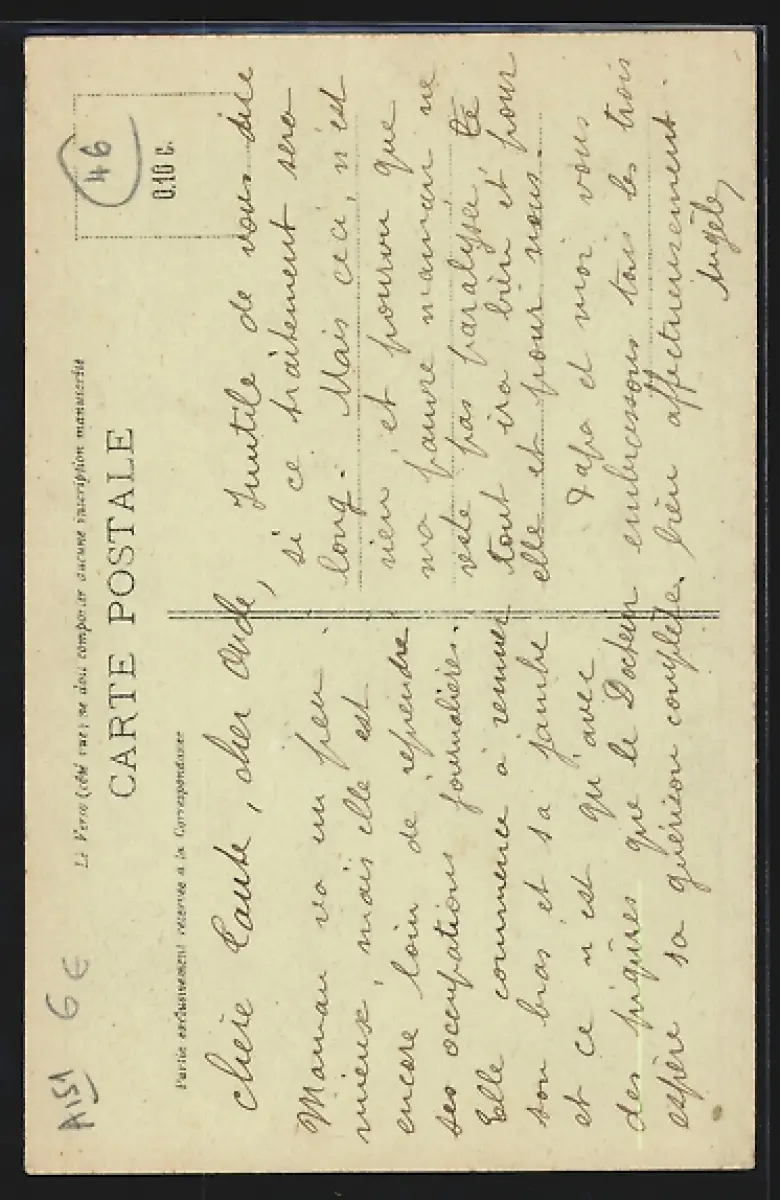 A151 6€
46
0.10 c.
Le Verso (côté vue) ne doit comporter aucune inscription manuscrite
CARTE POSTALE
Partie exclusivement réservée à la Correspondance
Chère Tante, cher Oncle,
Maman va un peu
mieux, mais elle est
encore loin de reprendre
ses occupations journalières.
Elle commence à remuer
son bras et sa jambe
et ce n'est qu'avec
des piqûres que le Docteur
espère sa guérison complète.
Inutile de vous dire
si ce traitement sera
long. Mais ceci, n'est
rien et pourvu que
ma pauvre maman ne
reste pas paralysée,
tout ira bien et pour
elle et pour nous.
Papa et moi vous
embrassons tous les trois
bien affectueusement.
Angèle